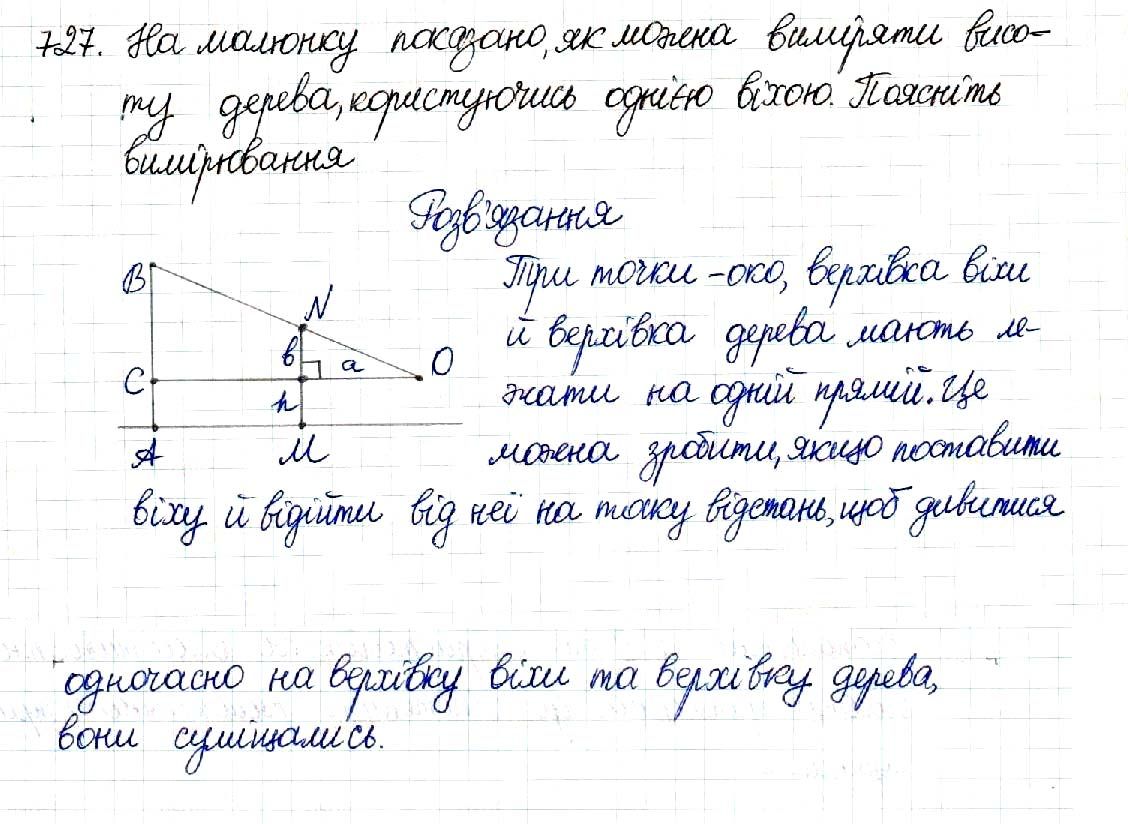 727. На малюнку показано, як можна виміряти висо-
ту дерева, користуючись однією віхою. Поясніть
вимірювання
Розв'язання
Три точки - око, верхівка віхи
й верхівка дерева мають ле-
жати на одній прямій. Це
можна зробити, якщо поставити
віху й відійти від неї на таку відстань, щоб дивитися
B
N
в
a
O
C
h
A
M
одночасно на верхівку віхи та верхівку дерева,
вони суміщались.